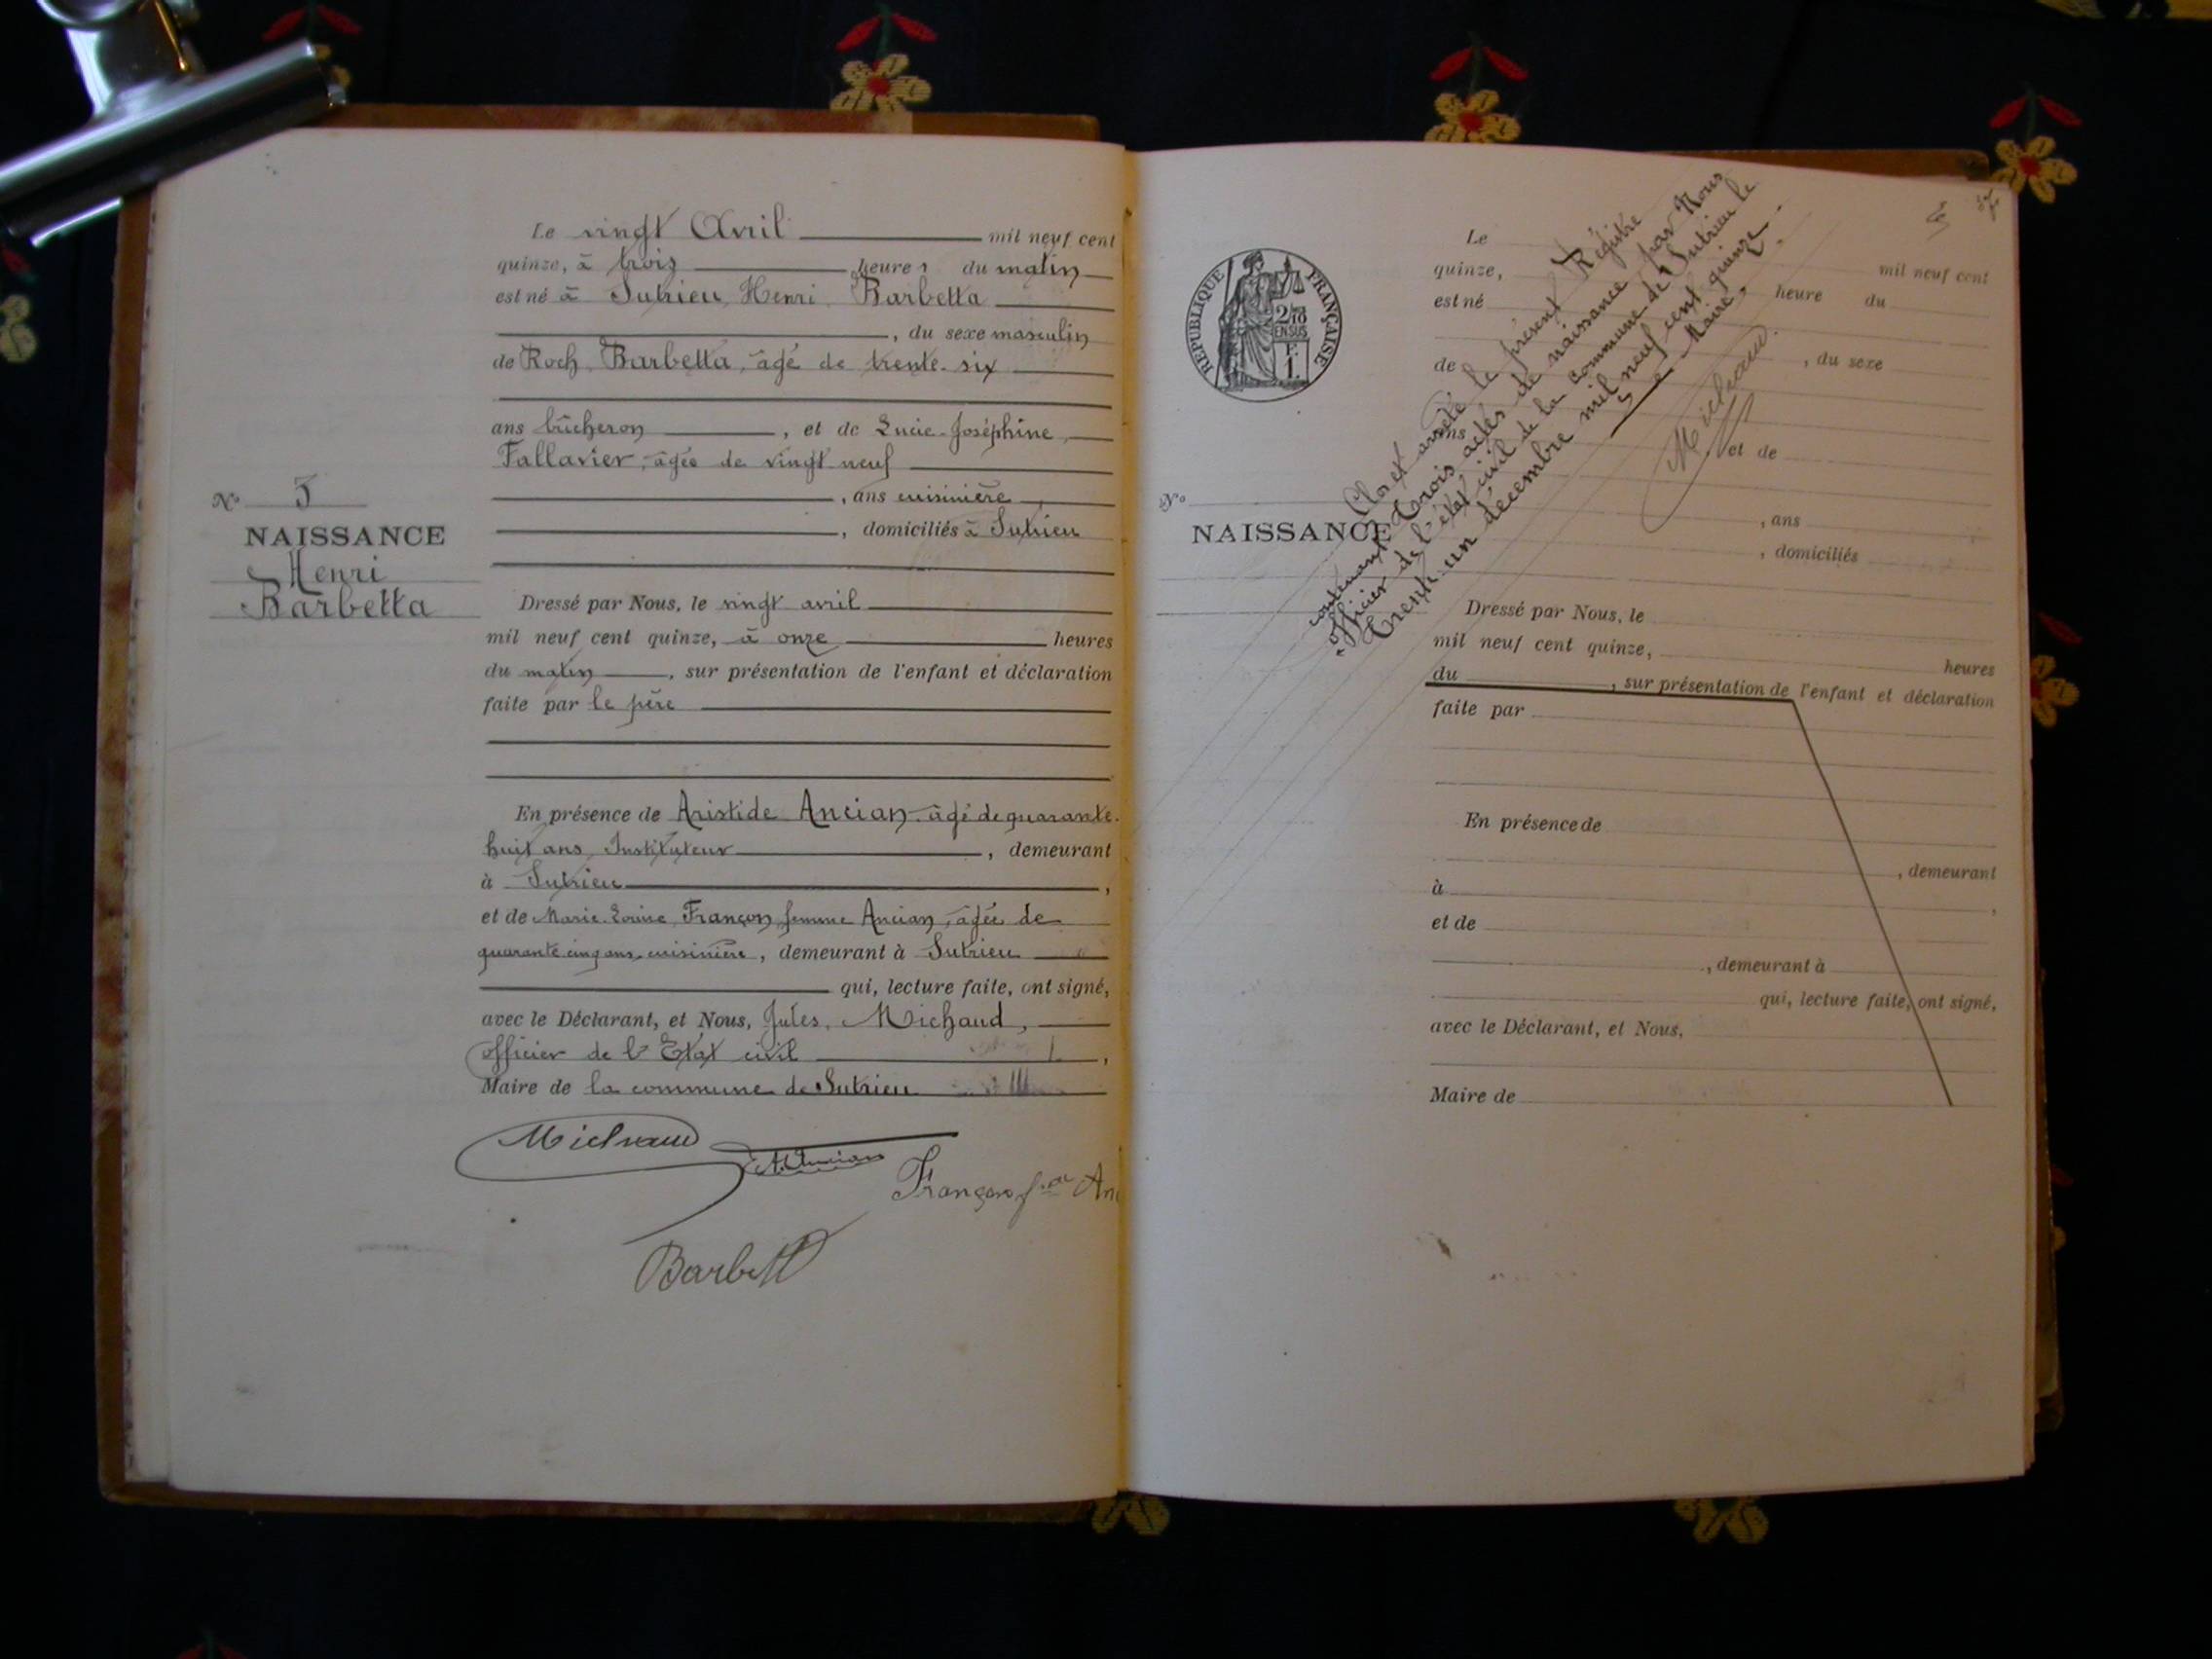 Le vingt Avril mil neuf cent
quinze, à trois heures du matin
est né à Sutrieu, Henri Barbetta
, du sexe masculin
de Roch Barbetta, âgé de trente-six
ans bûcheron, et de Lucie-Joséphine
Fallavier, âgée de vingt neuf
, ans cuisinière
, domiciliés à Sutrieu
N° 3
NAISSANCE
Henri
Barbetta
Dressé par Nous, le vingt avril
mil neuf cent quinze, à onze heures
du matin, sur présentation de l'enfant et déclaration
faite par le père
En présence de Aristide Ancian, âgé de quarante-
huit ans, Instituteur, demeurant
à Sutrieu,
et de Marie-Louise Françon femme Ancian, âgée de
quarante cinq ans, cuisinière, demeurant à Sutrieu
qui, lecture faite, ont signé,
avec le Déclarant, et Nous, Jules, Michaud,
officier de l'Etat civil,
Maire de la commune de Sutrieu
Michaud
Ancian
Françon f. An
Barbett
RÉPUBLIQUE FRANÇAISE
2/10
EN SUS
F.
1.
Le
mil neuf cent
quinze,
heure du
est né
, du sexe
de
ans
et de
N°
NAISSANCE
, ans
, domiciliés
Clos et arrêté le présent Régistre
contenant trois actes de naissance par Nous
officier de l'état civil de la commune de Sutrieu le
trente un décembre mil neuf cent quinze.
Le Maire,
Michaud.
Dressé par Nous, le
mil neuf cent quinze,
heures
du , sur présentation de l'enfant et déclaration
faite par
En présence de
, demeurant
à ,
et de
, demeurant à
qui, lecture faite, ont signé,
avec le Déclarant, et Nous,
Maire de